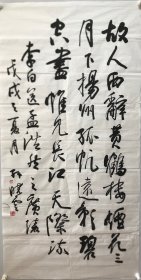 故人西辭黃鶴樓煙花三
月下揚州孤帆遠影碧
空盡惟見長江天際流
李白送孟浩然之廣陵
戊戌之夏月